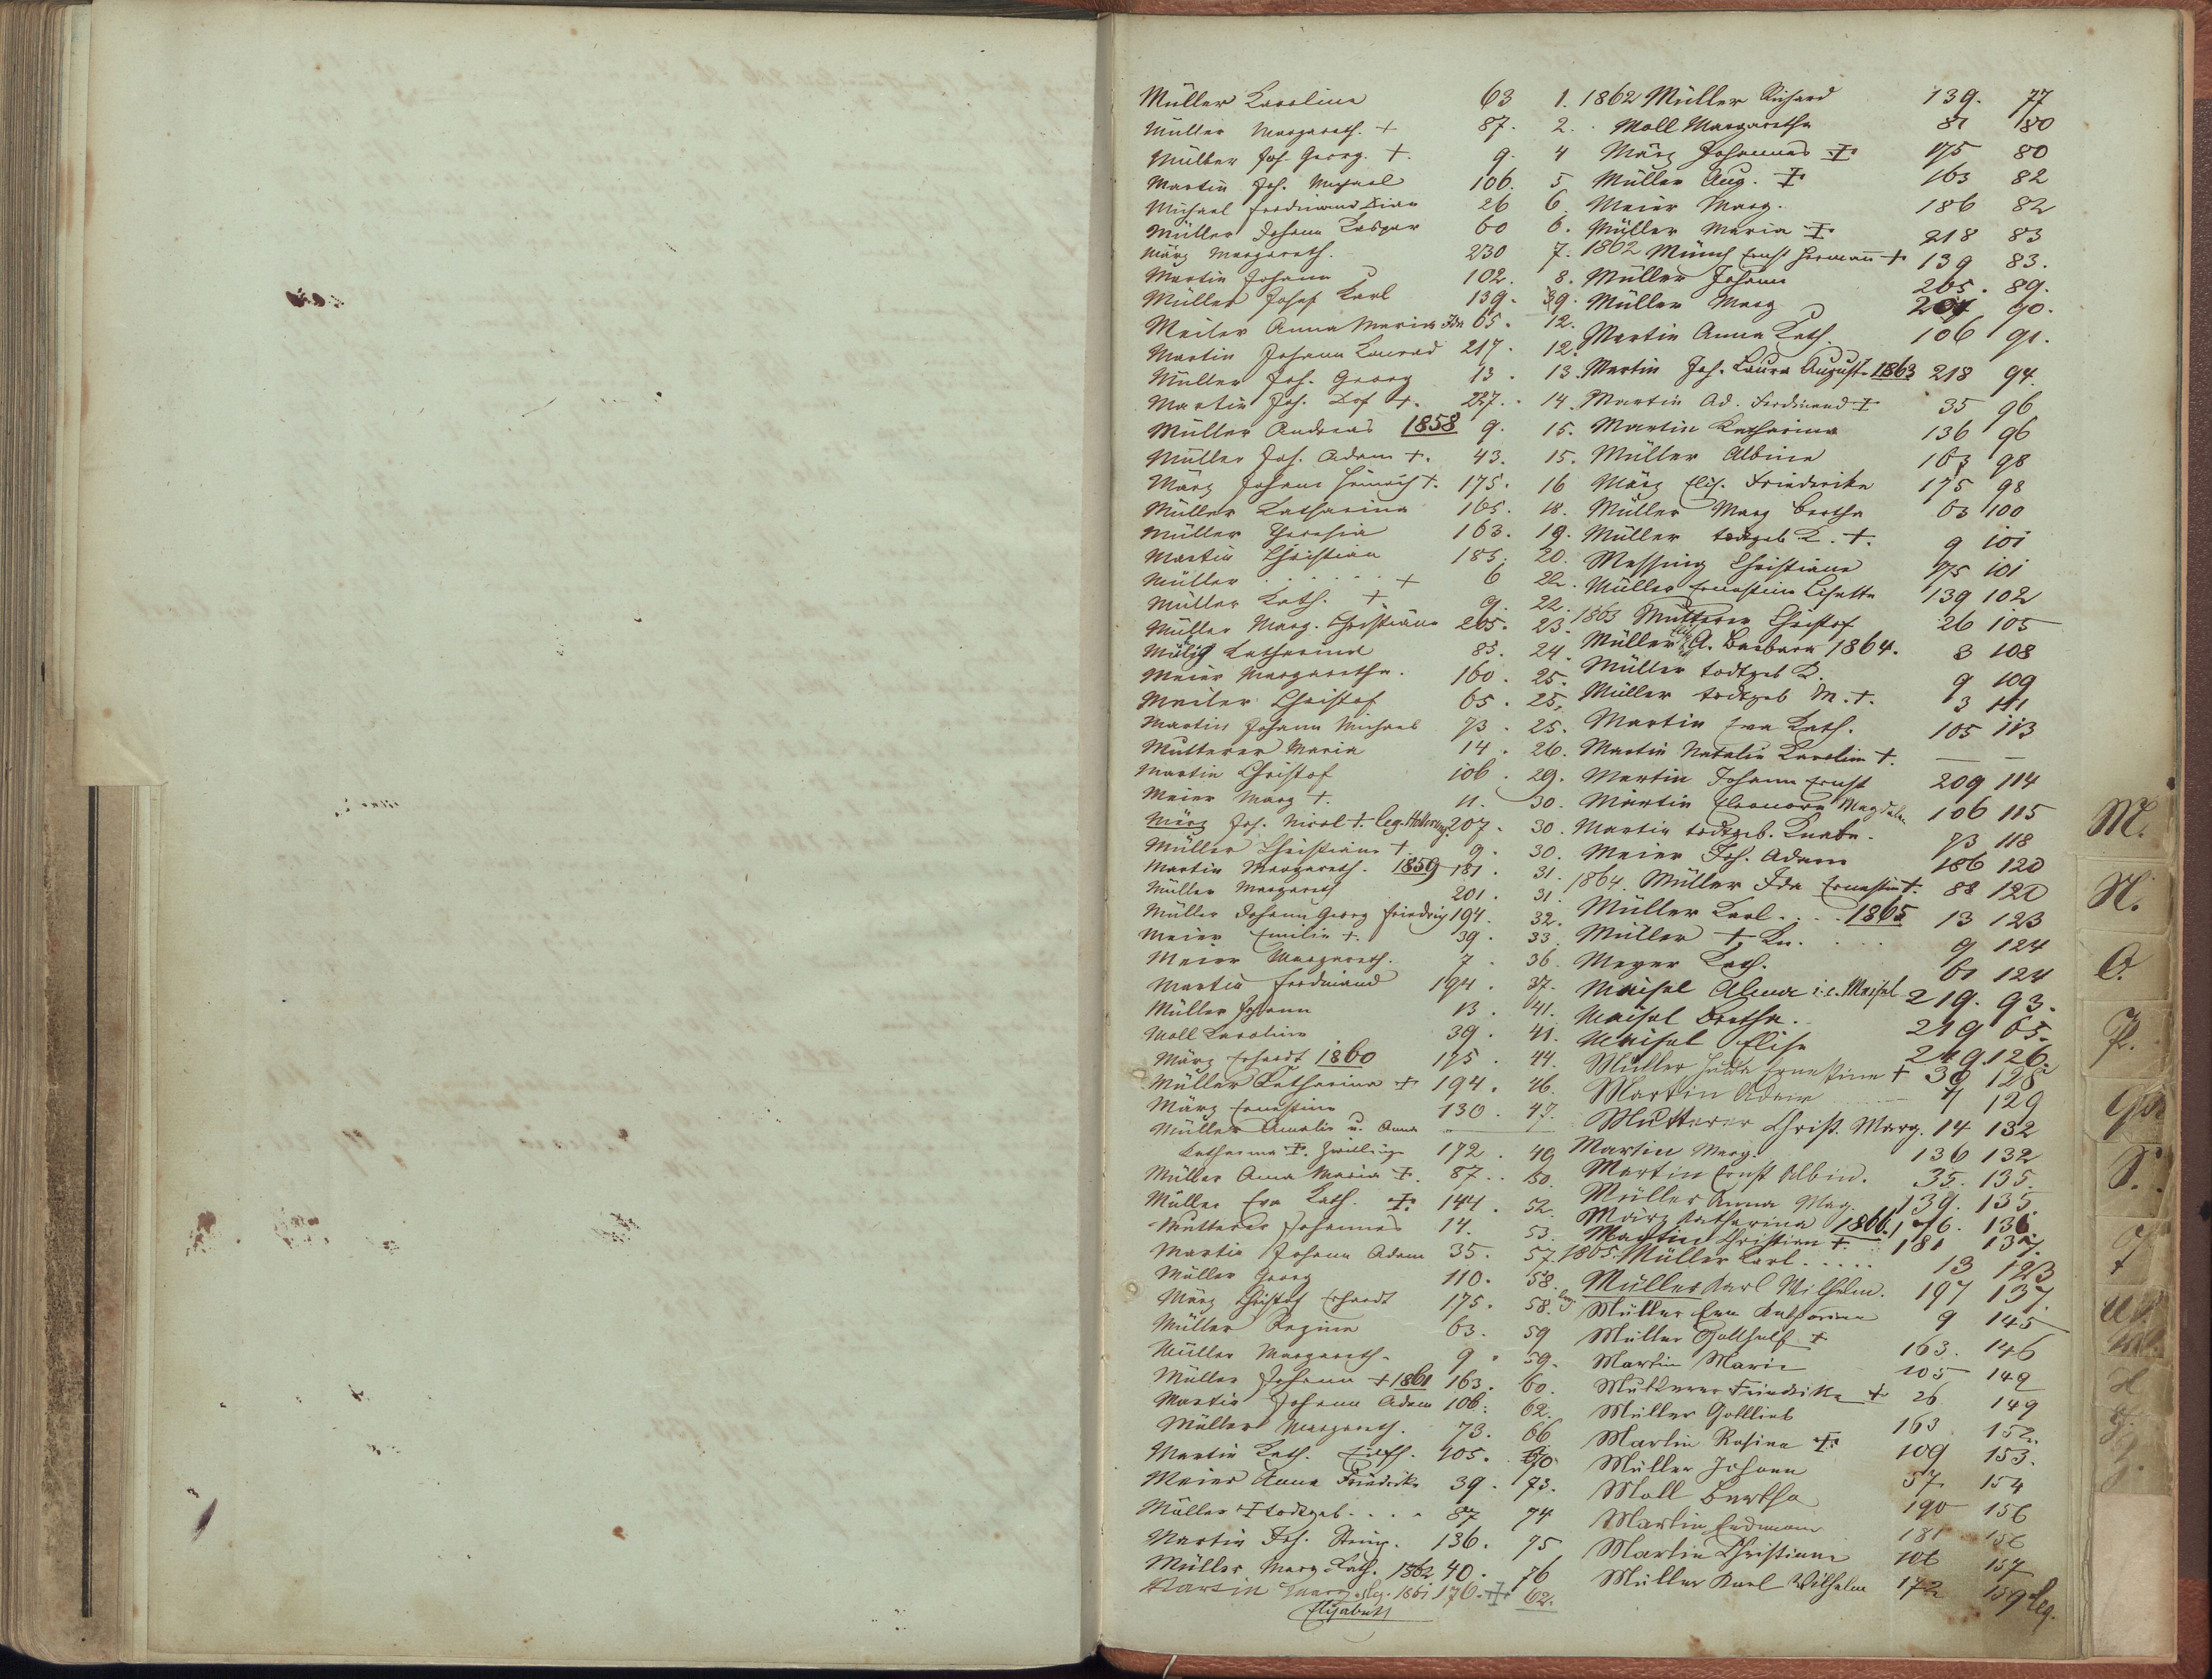 Müller Karoline 63 1.
Müller Margareth. + 87. 2.
Müller Joh. Georg. +. 9. 4
Martin Joh. Michael 106. 5
Michael Ferdinand 26 6.
Müller Johann Kaspar 60 6.
März Margareth. 230 7.
Martin Johann 102. 8.
Müller Josef Karl 139. 39.
Meiler Anna Maria Ida 65. 12.
Martin Johann Konrad 217. 12.
Müller Joh. Georg 13. 13.
Martin Joh. +. 227. 14.
Müller Andreas 1858 9. 15.
Müller Joh. Adam +. 43. 15.
März Johann Heinrich +. 175. 16
Müller Katharina 165. 18.
Müller Theresia 163. 19.
Martin Christian 185. 20.
Müller . . . . . . + 6 22.
Müller Kath. + 9. 22.
Müller Marg. Christiane 265. 23.
Katharina 85. 24.
Meier Margaretha. 160. 25.
Meiler Christof 65. 25.
Martin Johann Michael 73. 25.
Mutterer Maria 14. 26.
Martin Christof 106. 29.
Meier Marg +. 11. 30.
März Joh. Nicol +. leg. 207. 30.
Müller Christiane + 9. 30.
Martin Margareth. 1859 181. 31.
Müller Margareth 201. 31.
Müller Johann Georg Friedrich 194. 32.
Meier Emilie +. 39. 33.
Meier Margareth. 7. 36.
Martin Ferdinand 194. 37.
Müller Johann 13. 41.
Moll Karoline 39. 41.
März Erhardt 1860 175. 44.
Müller Katharina + 194. 46.
März Ernestine 130. 47.
Müller Amalie u. Anna
Katharina +. Zwillinge 172. 49
Müller Anna Maria +. 87.. 50.
Müller Eva Kath. +. 144. 52.
Mutterer Johannes 14. 53.
Martin Johann Adam 35. 57.
Müller Georg 110. 58.
März Christof Erhardt 175. 58.
Müller Regine 63. 59
Müller Margareth. 9. 59.
Müller Johann + 1861 163. 60.
Martin Johann Adam 106. 62.
Müller Margareth. 73. 66
Martin Kath. 105. 70
Meier Anna Friedrike 39. 73.
Müller + todtgeb. . . . 87 74
Martin Joh. 136. 75
Müller Marg. Kath. 1862 40. 76
Martin leg. 1861 176. + 62.
Elisabeth
1862 Müller Richard 139. 77
Moll Margaretha 81 80
März Johannes + 175 80
Müller Aug. + 163 82
Meier Marg. 186 82
Müller Maria + 218 83
1862 Münch Ernst Hermann + 139 83.
Müller Johann 265. 89.
Müller Marg 90.
Martin Anna Kath. 106 91.
Martin Joh. Laura August. 1863 218 94.
Martin Ad. Ferdinand + 35 96
Martin Katharina 136 96
Müller Albine 163 98
März Elis. Friederike 175 98
Müller Marg Bertha 63 100
Müller todtgeb K. +. 9 101
Messing Christiane 175 101
Müller Ernestine Lisette 139 102
1863 Mutterer Christof 26 105
Müller A. Barbara 1864. 8 108
Müller todtgeb K. 9 109
Müller todtgeb M. +. 13 111
Martin Eva Kath. 105 113
Martin Natalie Karolin +. — —
Martin Johann Ernst 209 114
Martin Eleonora Magdalen 106 115
Martin todtgeb. Knabe. 73 118
Meier Joh. Adam 186 120
1864. Müller Ida Ernestin +. 88 120
Müller Karl . . . 1865 13 123
Müller + Kn. . . . 9 124
Meyer Kath. 61 124
Maisel Alma i. e. Meisel 219. 93.
Maisel Bertha. 219 65.
Maisel Elise 219. 126.
Müller Hulda Ernestine + 39 128
Martin Adam 7 129
Mutterer Christ. Marg. 14 132
Martin Marg. 136 132
Martin Ernst Albin. 35. 135.
Müller Anna Mag. 139. 135.
März Katharina 1866. 176. 136.
Martin Christian +. 181 137.
1865. Müller Karl . . . . . 13 123
Müller Karl Wilhelm. 197 137.
Müller Eva Katharina 9 145
Müller Gotthelf + 163. 146
Martin Marie 105 149
Mutterer Friedrike + 26 149
Müller Gottlieb 163 152.
Martin Rosina + 109 153.
Müller Johann 57 154
Moll Bertha 190 156
Martin Erdmann 181 156
Martin Christiane 106 157
Müller Karl Wilhelm 172 159 leg.
M.
N.
O.
P.
Qu
S.
T
U.
W.
Z.